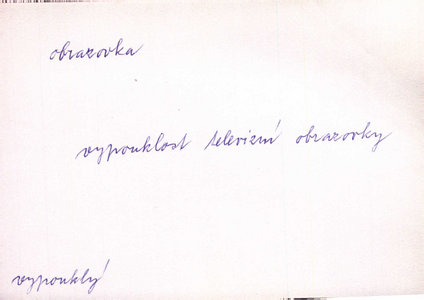 obrazovka
vypouklost televizní obrazovky
vypouklý